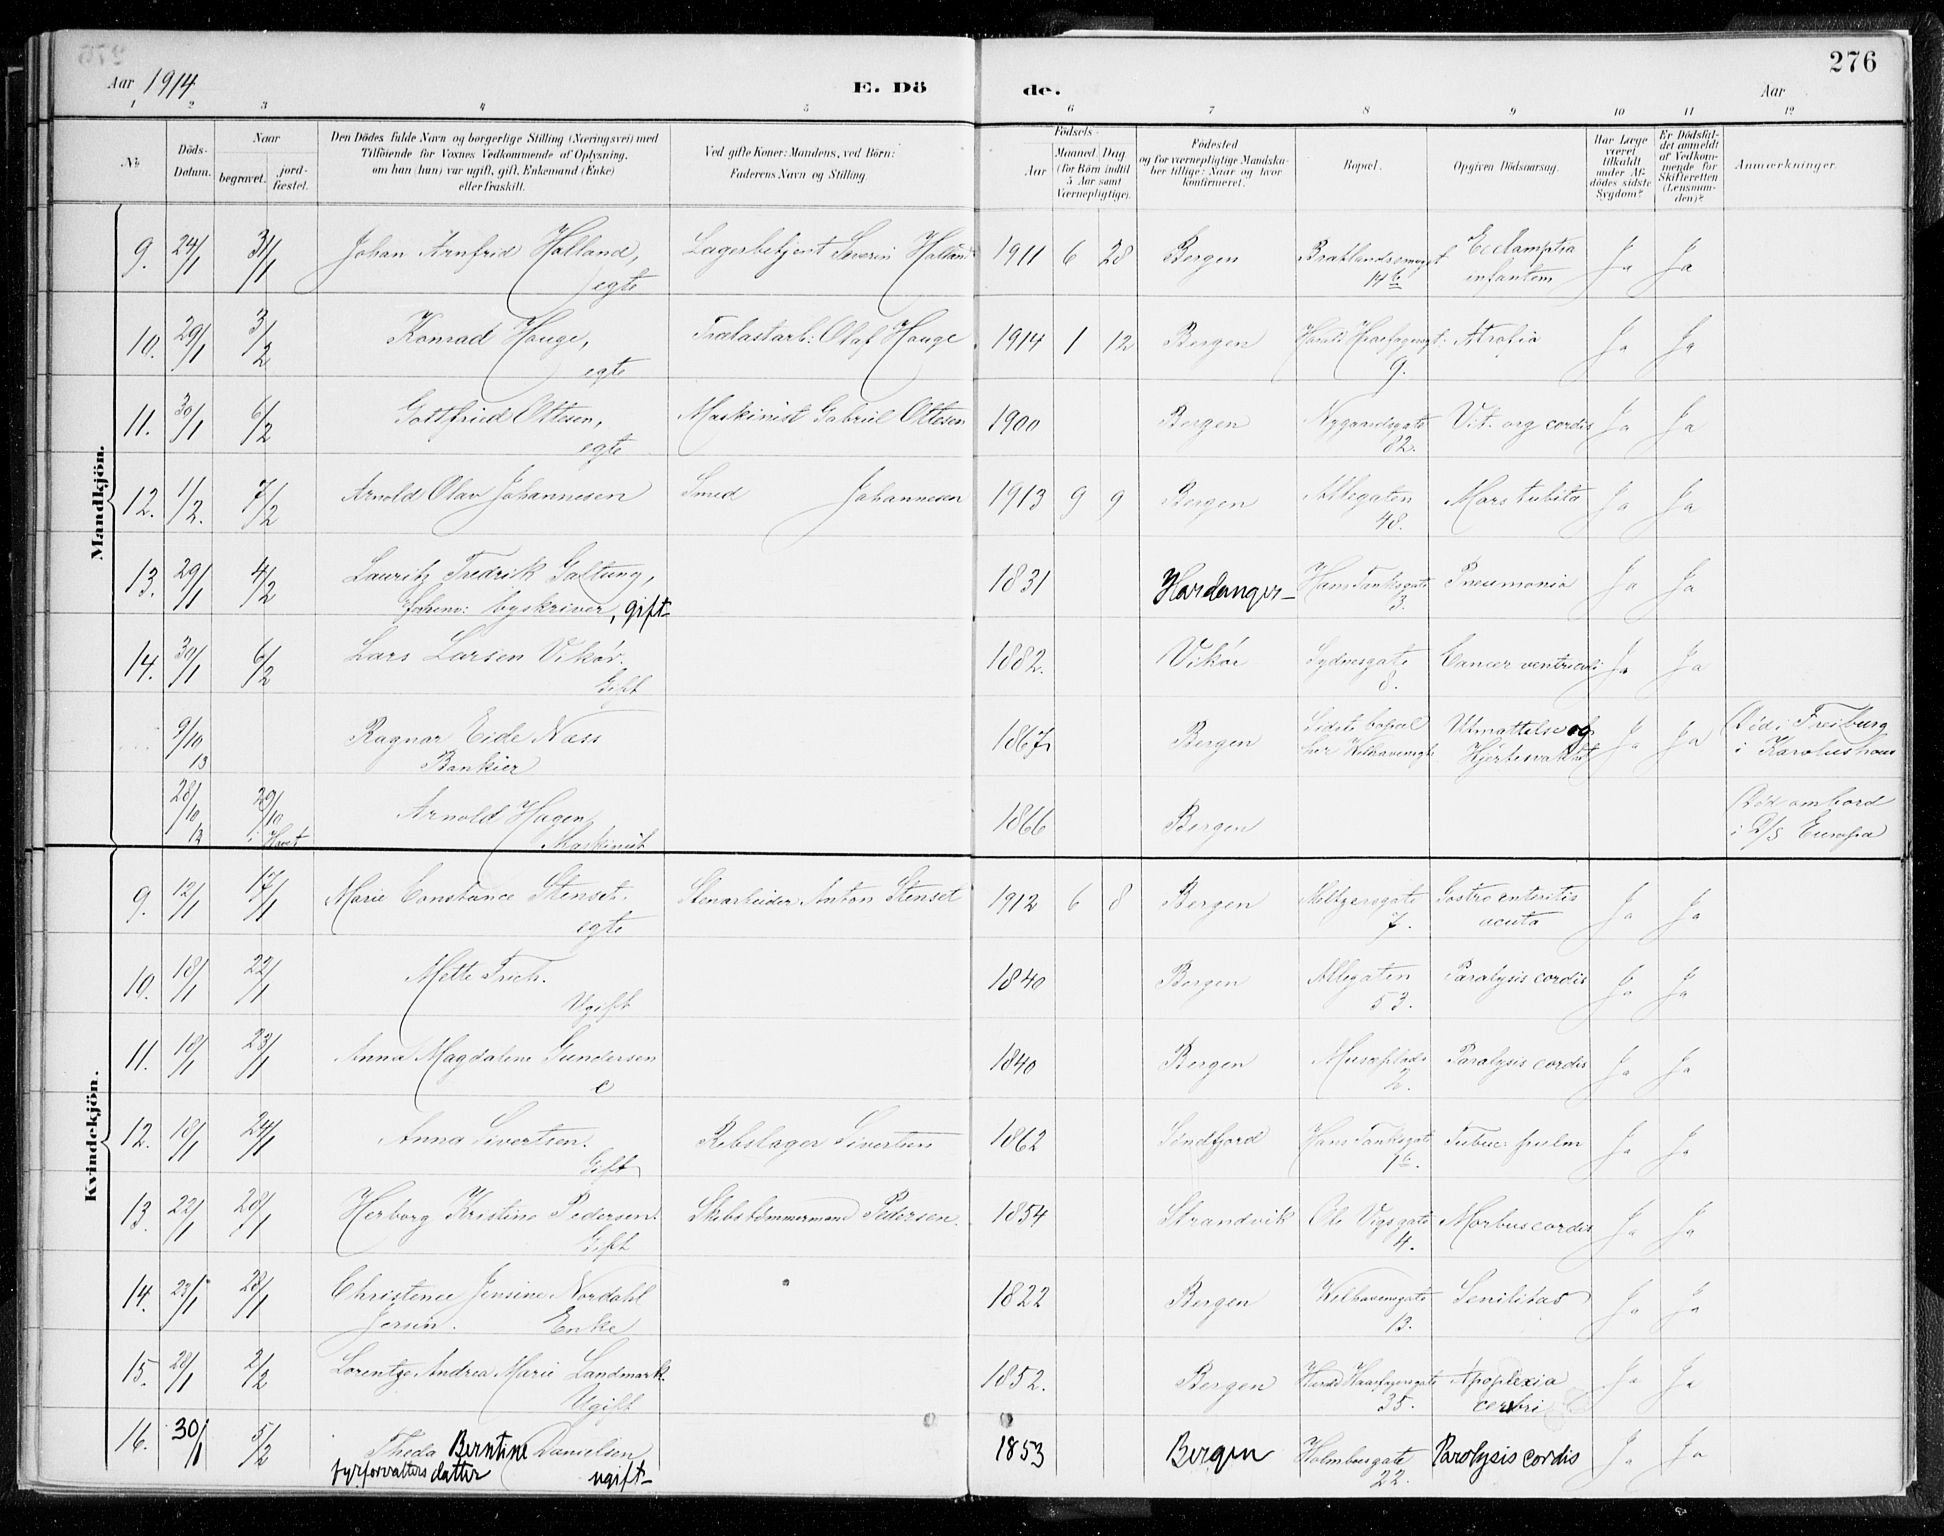 276
Aar 1914
E. Dö
de.
Aar
1 2 3 4 5 6 7 8 9 10 11 12
No
Döds-Datum.
Naar
begravet.
jord-fæstet.
Den Dödes fulde Navn og borgerlige Stilling (Næringsvei) med
Tilföiende for Voxnes Vedkommende af Oplysning,
om han (hun) var ugift, gift, Enkemand (Enke)
eller fraskilt.
Ved gifte Koner: Mandens, ved Börn:
Faderens Navn og Stilling.
Födsels-
Aar
Maaned Dag
(for Börn indtil
5 Aar samt
Værnepligtige).
Födested
og for værnepligtige Mandska-
ber tillige: Naar og hvor
konfirmeret.
Bopæl.
Opgiven Dödsaarsag.
Har Læge
været
tilkaldt
under Af-
dödes sidste
Sygdom?
Er Dödsfal-
det anmeldt
af Vedkom-
mende for
Skifteretten
(Lensman-
den)?
Anmærkninger.
Mandkjön.
9. 24/1 31/1 Johan Arnfrid Halland, Severin Halland 1911 6 28 Bergen Eclamptia Ja Ja
egte 14b infantem
10. 29/1 3/2 Konrad Hauge, Trælastarb: Olaf Hauge 1914 1 12 Bergen Atrofia Ja Ja
egte 9.
11. 30/1 6/2 Gottfried Ottesen, Maskinist Gabriel Ottesen 1900 Bergen Nygaardsgate Vit. org cordis Ja Ja
egte 82.
12. 1/2. 7/2 Arnold Olav Johannesen Smed Johannesen 1913 9 9 Bergen Allegaten Mors subita Ja Ja
48.
13. 29/1 4/2 Lauritz Fredrik Galtung, 1831 Hardanger Hans Tanksgate Pneumonia Ja Ja
byskriver, gift 3.
14. 30/1 6/2 Lars Larsen Vikör. 1882. Vikör Sydnesgate Cancer ventriculi Ja Ja
Gift 8.
9/10 13 Ragnar Eide Næss 1867 Bergen Sidste bopæl Utmattelse og Ja Ja Död i Freiburg
Bankier her Welhavensgt Hjertesvakhet i
28/10 29/10 i Havet Arnold Hagen 1866 Bergen Död ombord
Maskinist i D/S Europa
Kvindekjön.
9. 12/1 17/1 Marie Constance Stenset. Stenarbeider Anton Stenset 1912 6 8 Bergen Meltzersgate Gastro enteritis Ja Ja
egte 7. acuta
10. 18/1 22/1 Mette 1840 Bergen Allegaten Paralysis cordis Ja Ja
Ugift 53.
11. 18/1 23/1 Anna Magdalene Gundersen 1840 Bergen Musæplads Paralysis cordis Ja Ja
e 2.
12. 18/1 24/1 Anna Sivertsen. Rebslager Sivertsen 1862 Söndfjord Hans Tanksgate Tuberc. pulm Ja Ja
Gift 1b.
13. 22/1 28/1 Herborg Kristine Pedersen. Skibstömmermand Pedersen. 1854 Strandvik Ole Vigsgate Morbus cordis Ja Ja
Gift 4.
14. 23/1 28/1 Christence Jensine Nordahl 1822 Bergen Welhavensgate Senilitas Ja Ja
Enke 13.
15. 28/1 2/2 Lorentze Andrea Marie Landmark. 1852. Bergen Harald Haarfagersgate Apoplexia Ja Ja
Ugift 35. cerebri
16. 30/1 5/2 Theda Berntine Danielsen 1853 Bergen Holmboesgate Paralysis cordis Ja Ja
fyrforvalters datter ugift 22.